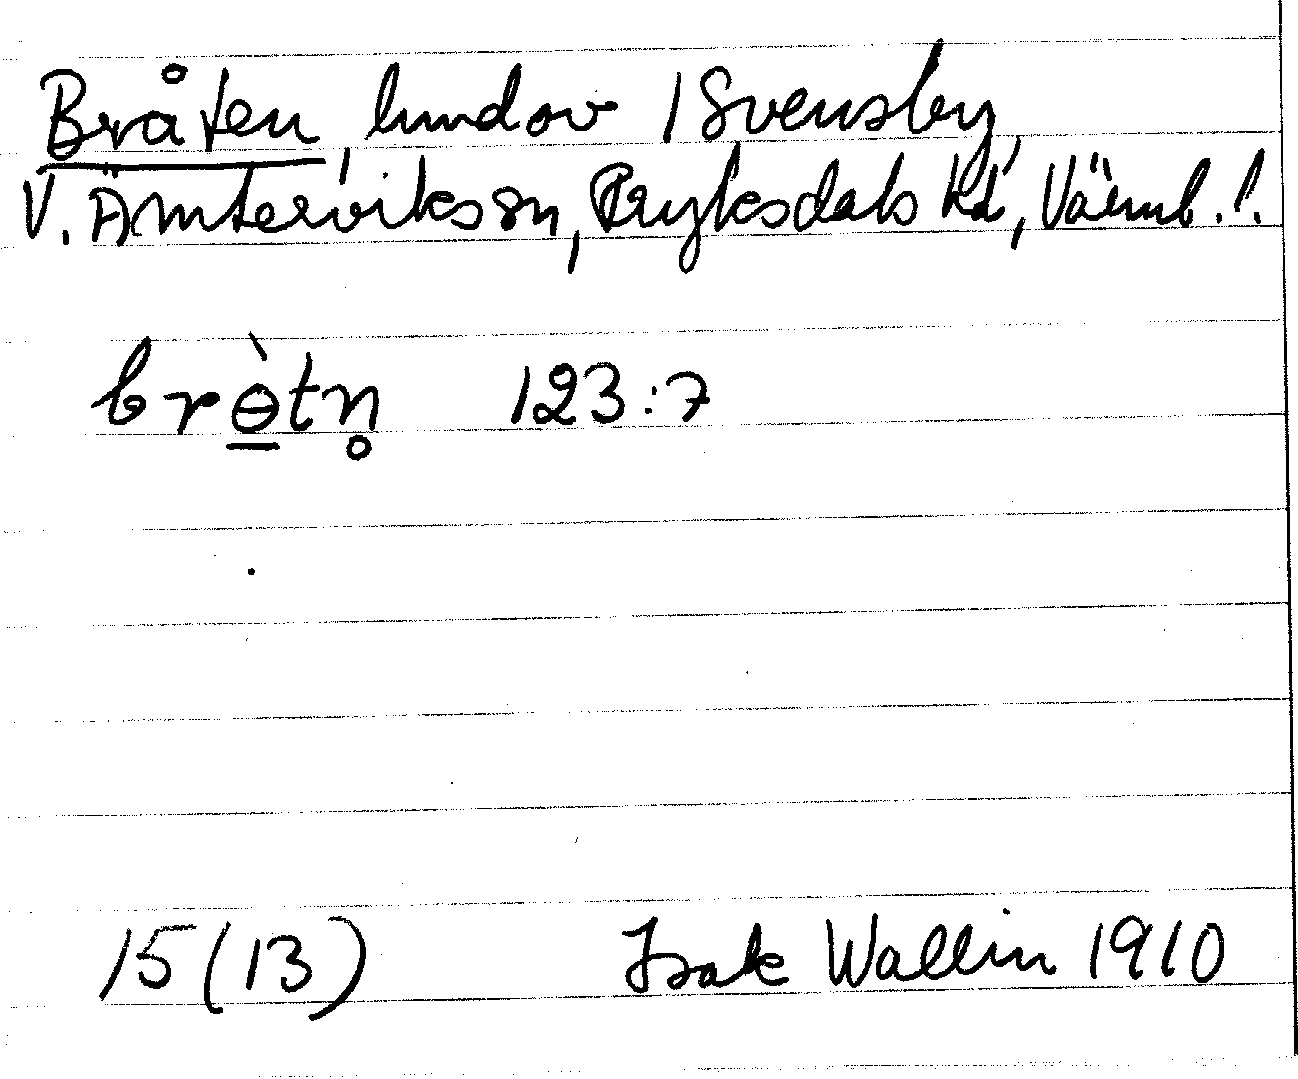 Bråten, lundar / Svensby,
V. Ämterviks sn, Fryksdals hd, Värml. l.
brɵ̠̀tn̥ 123:7
15 (13) Isak Wallin 1910